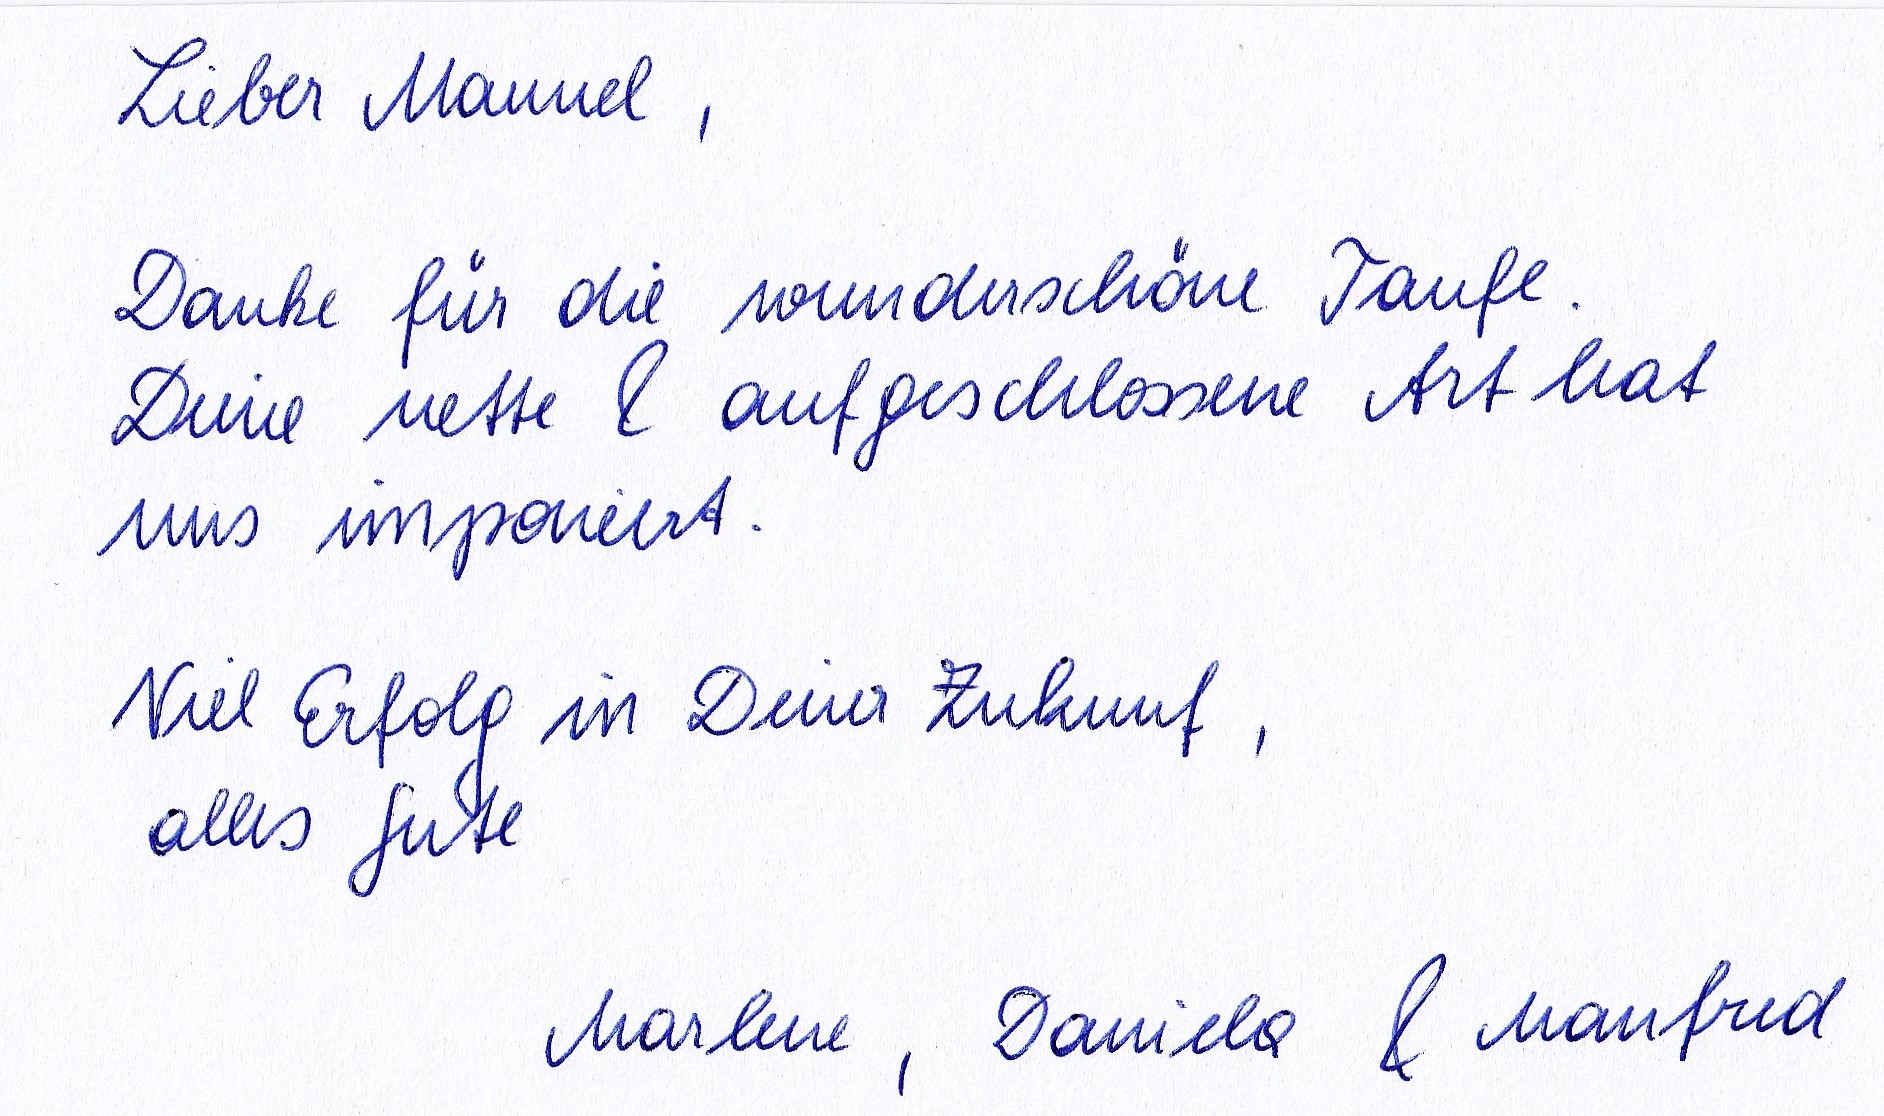 Lieber Manuel,
Danke für die wunderschöne Taufe.
Deine nette & aufgeschlossene Art hat
uns imponiert.
Viel Erfolg in Deiner Zukunft,
alles Gute
Marlene, Daniela & Manfred